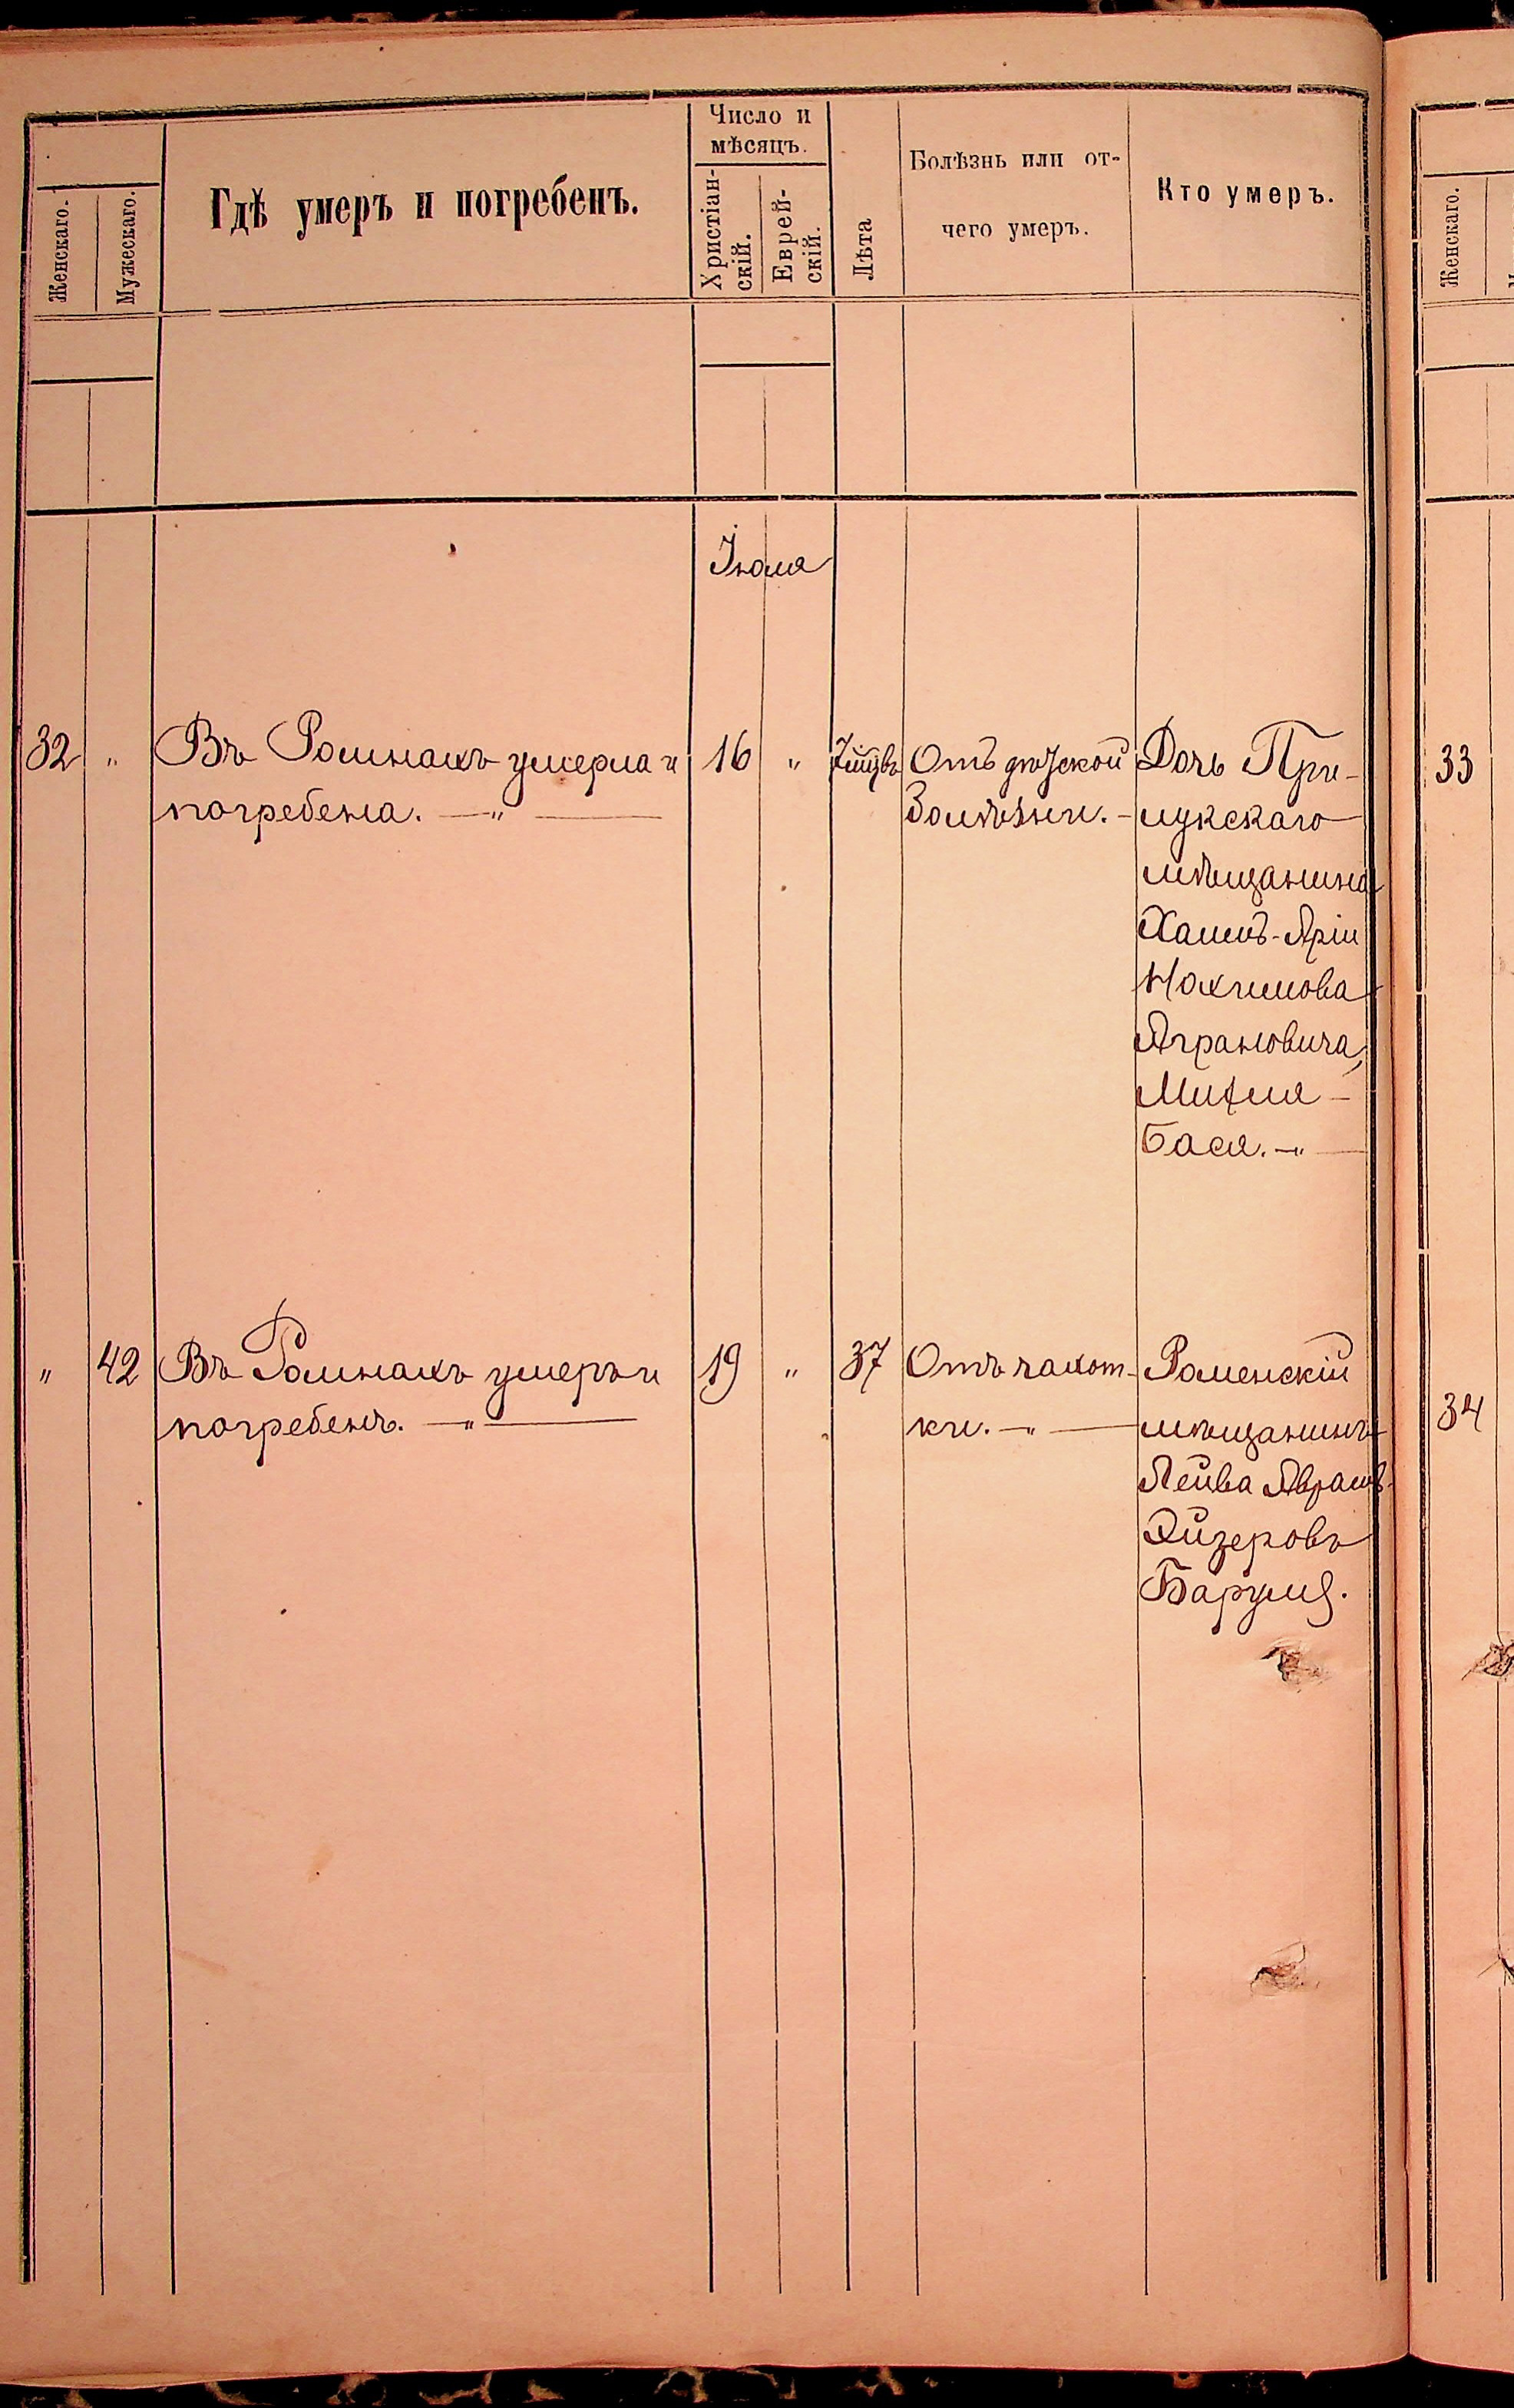 Женскаго.
Мужескаго.
Гдѣ умеръ и погребенъ.
Число и
мѣсяцъ.
Христіан-
скій.
Еврей-
скій.
Лѣта
Болѣзнь или от-
чего умеръ.
Кто умеръ.
Іюля
32 " Въ Ромнахъ умерла и
погребена. — " —
16 "
Отъ дѣтской
болѣзни. —
Дочь При-
лукскаго
мѣщанина
Хаимъ-Арія
Нахимова
Аграновича,
Михля -
Бася. — " —
" 42 Въ Ромнахъ умеръ и
погребенъ. — " —
19 " 37
Отъ чахот-
ки. — " —
Роменскій
мѣщанинъ
Лейба Аврам.-
Эйзеровъ
Женскаго.
33
34